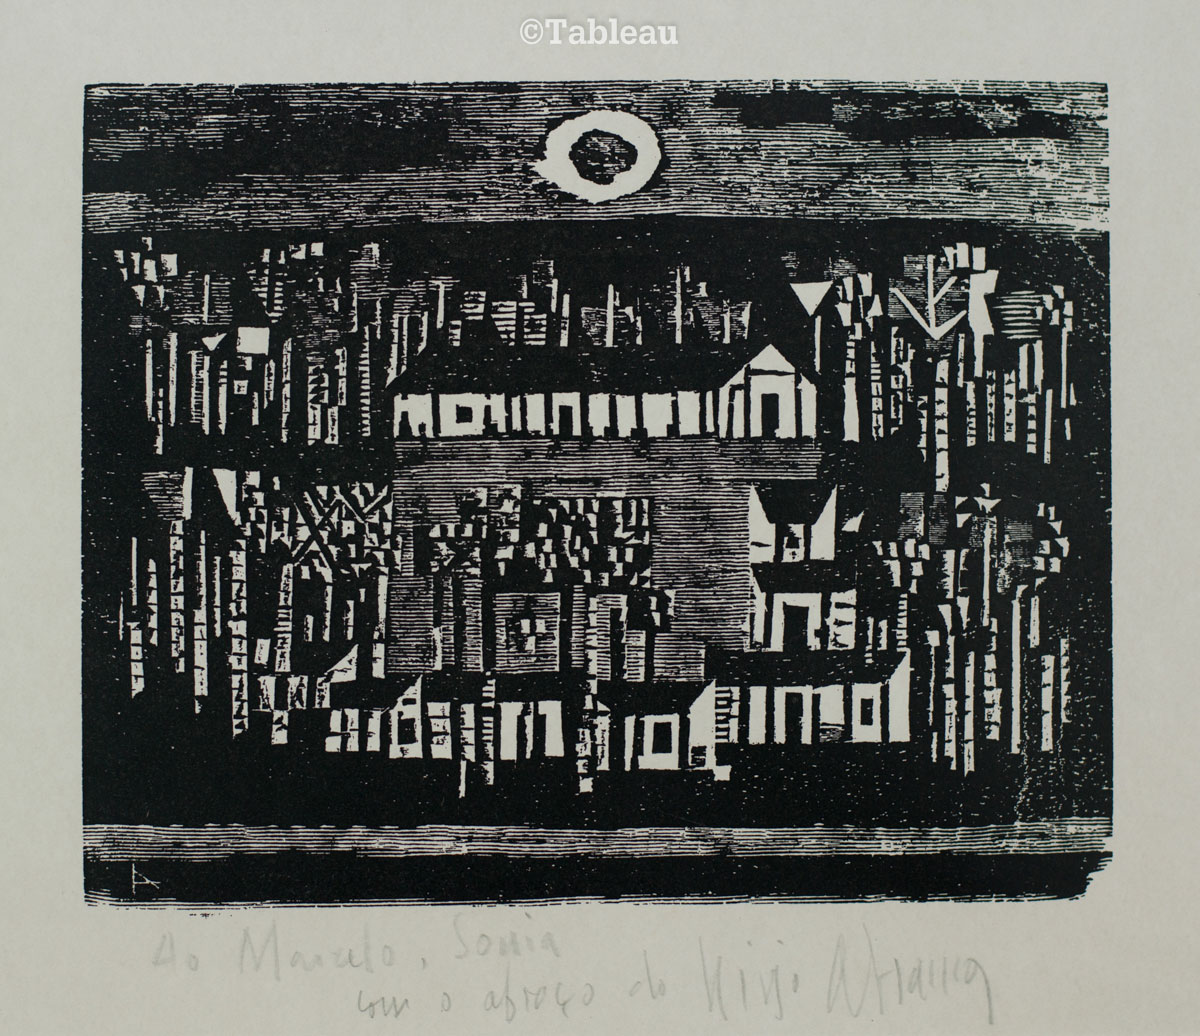 ©Tableau
Ao Marcelo, Sonia
com o abraço do Livio Abramo